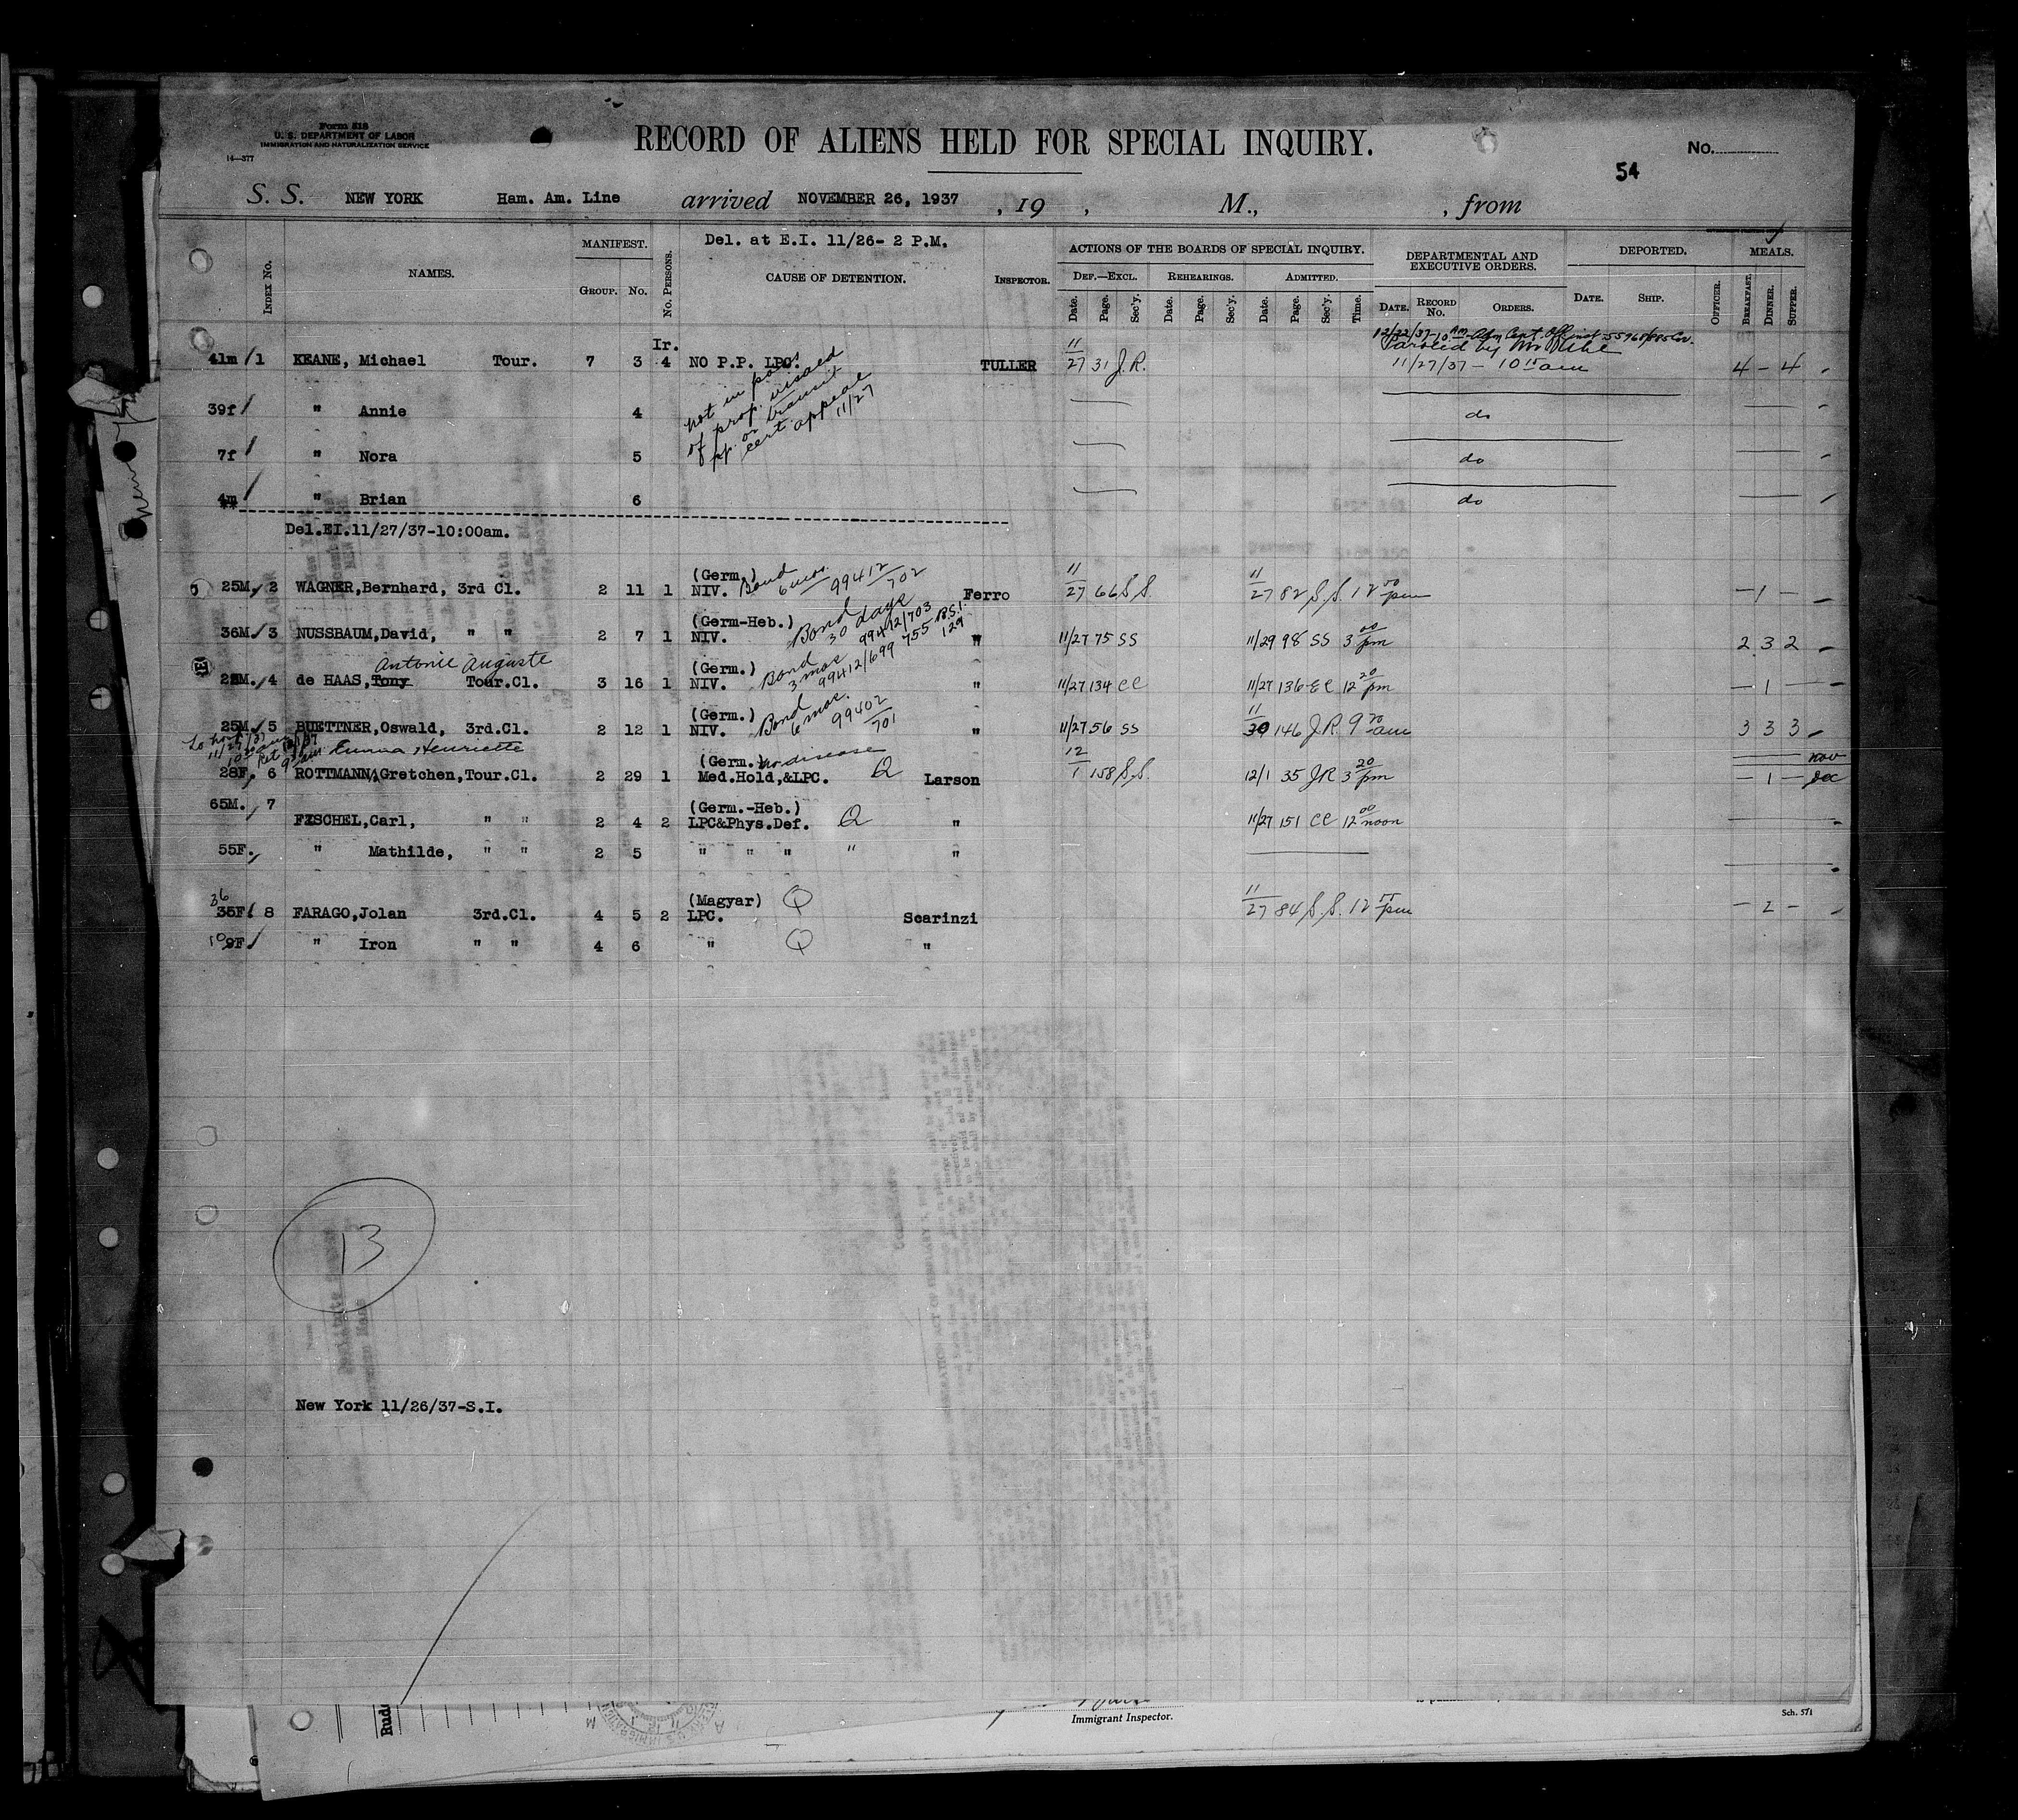 Form 518
U. S. DEPARTMENT OF LABOR
IMMIGRATION AND NATURALIZATION SERVICE
14—377
RECORD OF ALIENS HELD FOR SPECIAL INQUIRY.
No.
54
S. S. NEW YORK Ham. Am. Line arrived NOVEMBER 26, 1937 , 19 , M., , from
Del. at E.I. 11/26- 2 P.M.
INDEX NO. NAMES. MANIFEST. GROUP. NO. NO. PERSONS. CAUSE OF DETENTION. INSPECTOR. ACTIONS OF THE BOARDS OF SPECIAL INQUIRY. DEPARTMENTAL AND EXECUTIVE ORDERS. DEPORTED. MEALS.
DEF.—EXCL. REHEARINGS. ADMITTED.
Date. Page. Sec'y. Date. Page. Sec'y. Date. Page. Sec'y. Time. DATE. RECORD NO. ORDERS. DATE. SHIP. OFFICER. BREAKFAST. DINNER. SUPPER.
12/22/37-10 AM
Paroled by Mr
Ir.
41m / 1 KEANE, Michael Tour. 7 3 4 NO P.P. LPC. TULLER 11/27 31 J.R. 11/27/37 - 10 15 am 4 - 4
not in poss.
of prop. visaed
pp. or transit
cert. appeal
11/27
39f / " Annie 4 do
7f / " Nora 5 do
4m / " Brian 6 do
Del.EI.11/27/37-10:00am.
25M. / 2 WAGNER,Bernhard, 3rd Cl. 2 11 1 (Germ.) NIV. Bond 6 mos. 99412/702 Ferro 11/27 66 S.S. 11/27 82 S.S. 12 00 pm - 1 -
36M / 3 NUSSBAUM,David, " " 2 7 1 (Germ-Heb.) NIV. Bond 30 days 99412/703 B.S.I. 129 " 11/27 75 SS 11/29 98 SS 3 00 pm 2 3 2
Antonie Auguste
M. / 4 de HAAS,Tony Tour.Cl. 3 16 1 (Germ.) NIV. Bond 3 mos 99412/699 755 " 11/27 134 CC 11/27 136 CC 12 20 pm - 1 -
25M / 5 BUETTNER,Oswald, 3rd.Cl. 2 12 1 (Germ.) NIV. Bond 6 mos. 99402/701 " 11/27 56 SS 11/30 146 J.R. 9 20 am 3 3 3
Emma Henriette
28F. 6 ROTTMANN,Gretchen,Tour.Cl. 2 29 1 (Germ.) no disease Med.Hold,&LPC. Q Larson 12/1 158 S.S. 12/1 35 JR 3 20 pm nov - 1 - dec
65M. / 7 FISCHEL,Carl, " " 2 4 2 (Germ.-Heb.) LPC&Phys.Def. Q " 11/27 151 CC 12 00 noon
55F. / " Mathilde, " " 2 5 " " " " "
36
35F. 8 FARAGO,Jolan 3rd.Cl. 4 5 2 (Magyar) LPC. Q Scarinzi 11/27 84 S.S. 12 55 pm - 2 -
10 9F. / " Iron " " 4 6 " Q "
13
New York 11/26/37-S.I.
Immigrant Inspector.
Sch. 571